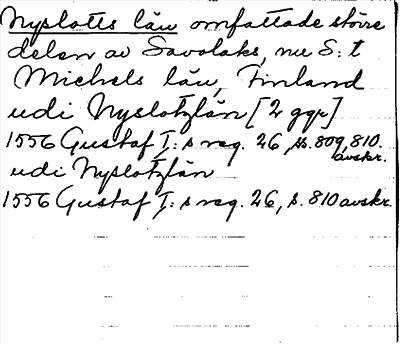 Nyslotts län omfattade större
delen av Savolaks, nu S:t
Michels län, Finland
udi Nyslotzlän [2 ggr]
1556 Gustaf I:s reg. 26, ss. 809, 810.
avskr.
udi Nyslotzlän
1556 Gustaf I:s reg. 26, s. 810 avskr.